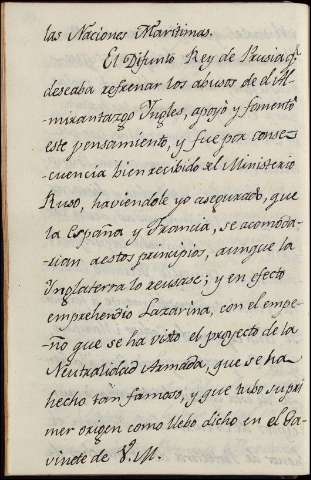 las Naciones Maritimas.
El Difunto Rey de Prusia q.e
deseaba refrenar los abusos de el Al-
-mirantazgo Yngles, apoyó y fomentó
este pensamiento, y fue por conse-
cuencia bien recibido del Ministerio
Ruso, haviendole yo asegurado, que
la España y Francia, se acomoda-
-rian aestos principios, aunque la
Ynglaterra lo reusase; y en efecto
emprehendio la Zarina, con el empe-
-ño que se ha visto el proyecto de la
Neutralidad Armada, que se ha
hecho tan famoso, y que tubo su pri
mer origen como llebo dicho en el Ga-
vinete de V. M.